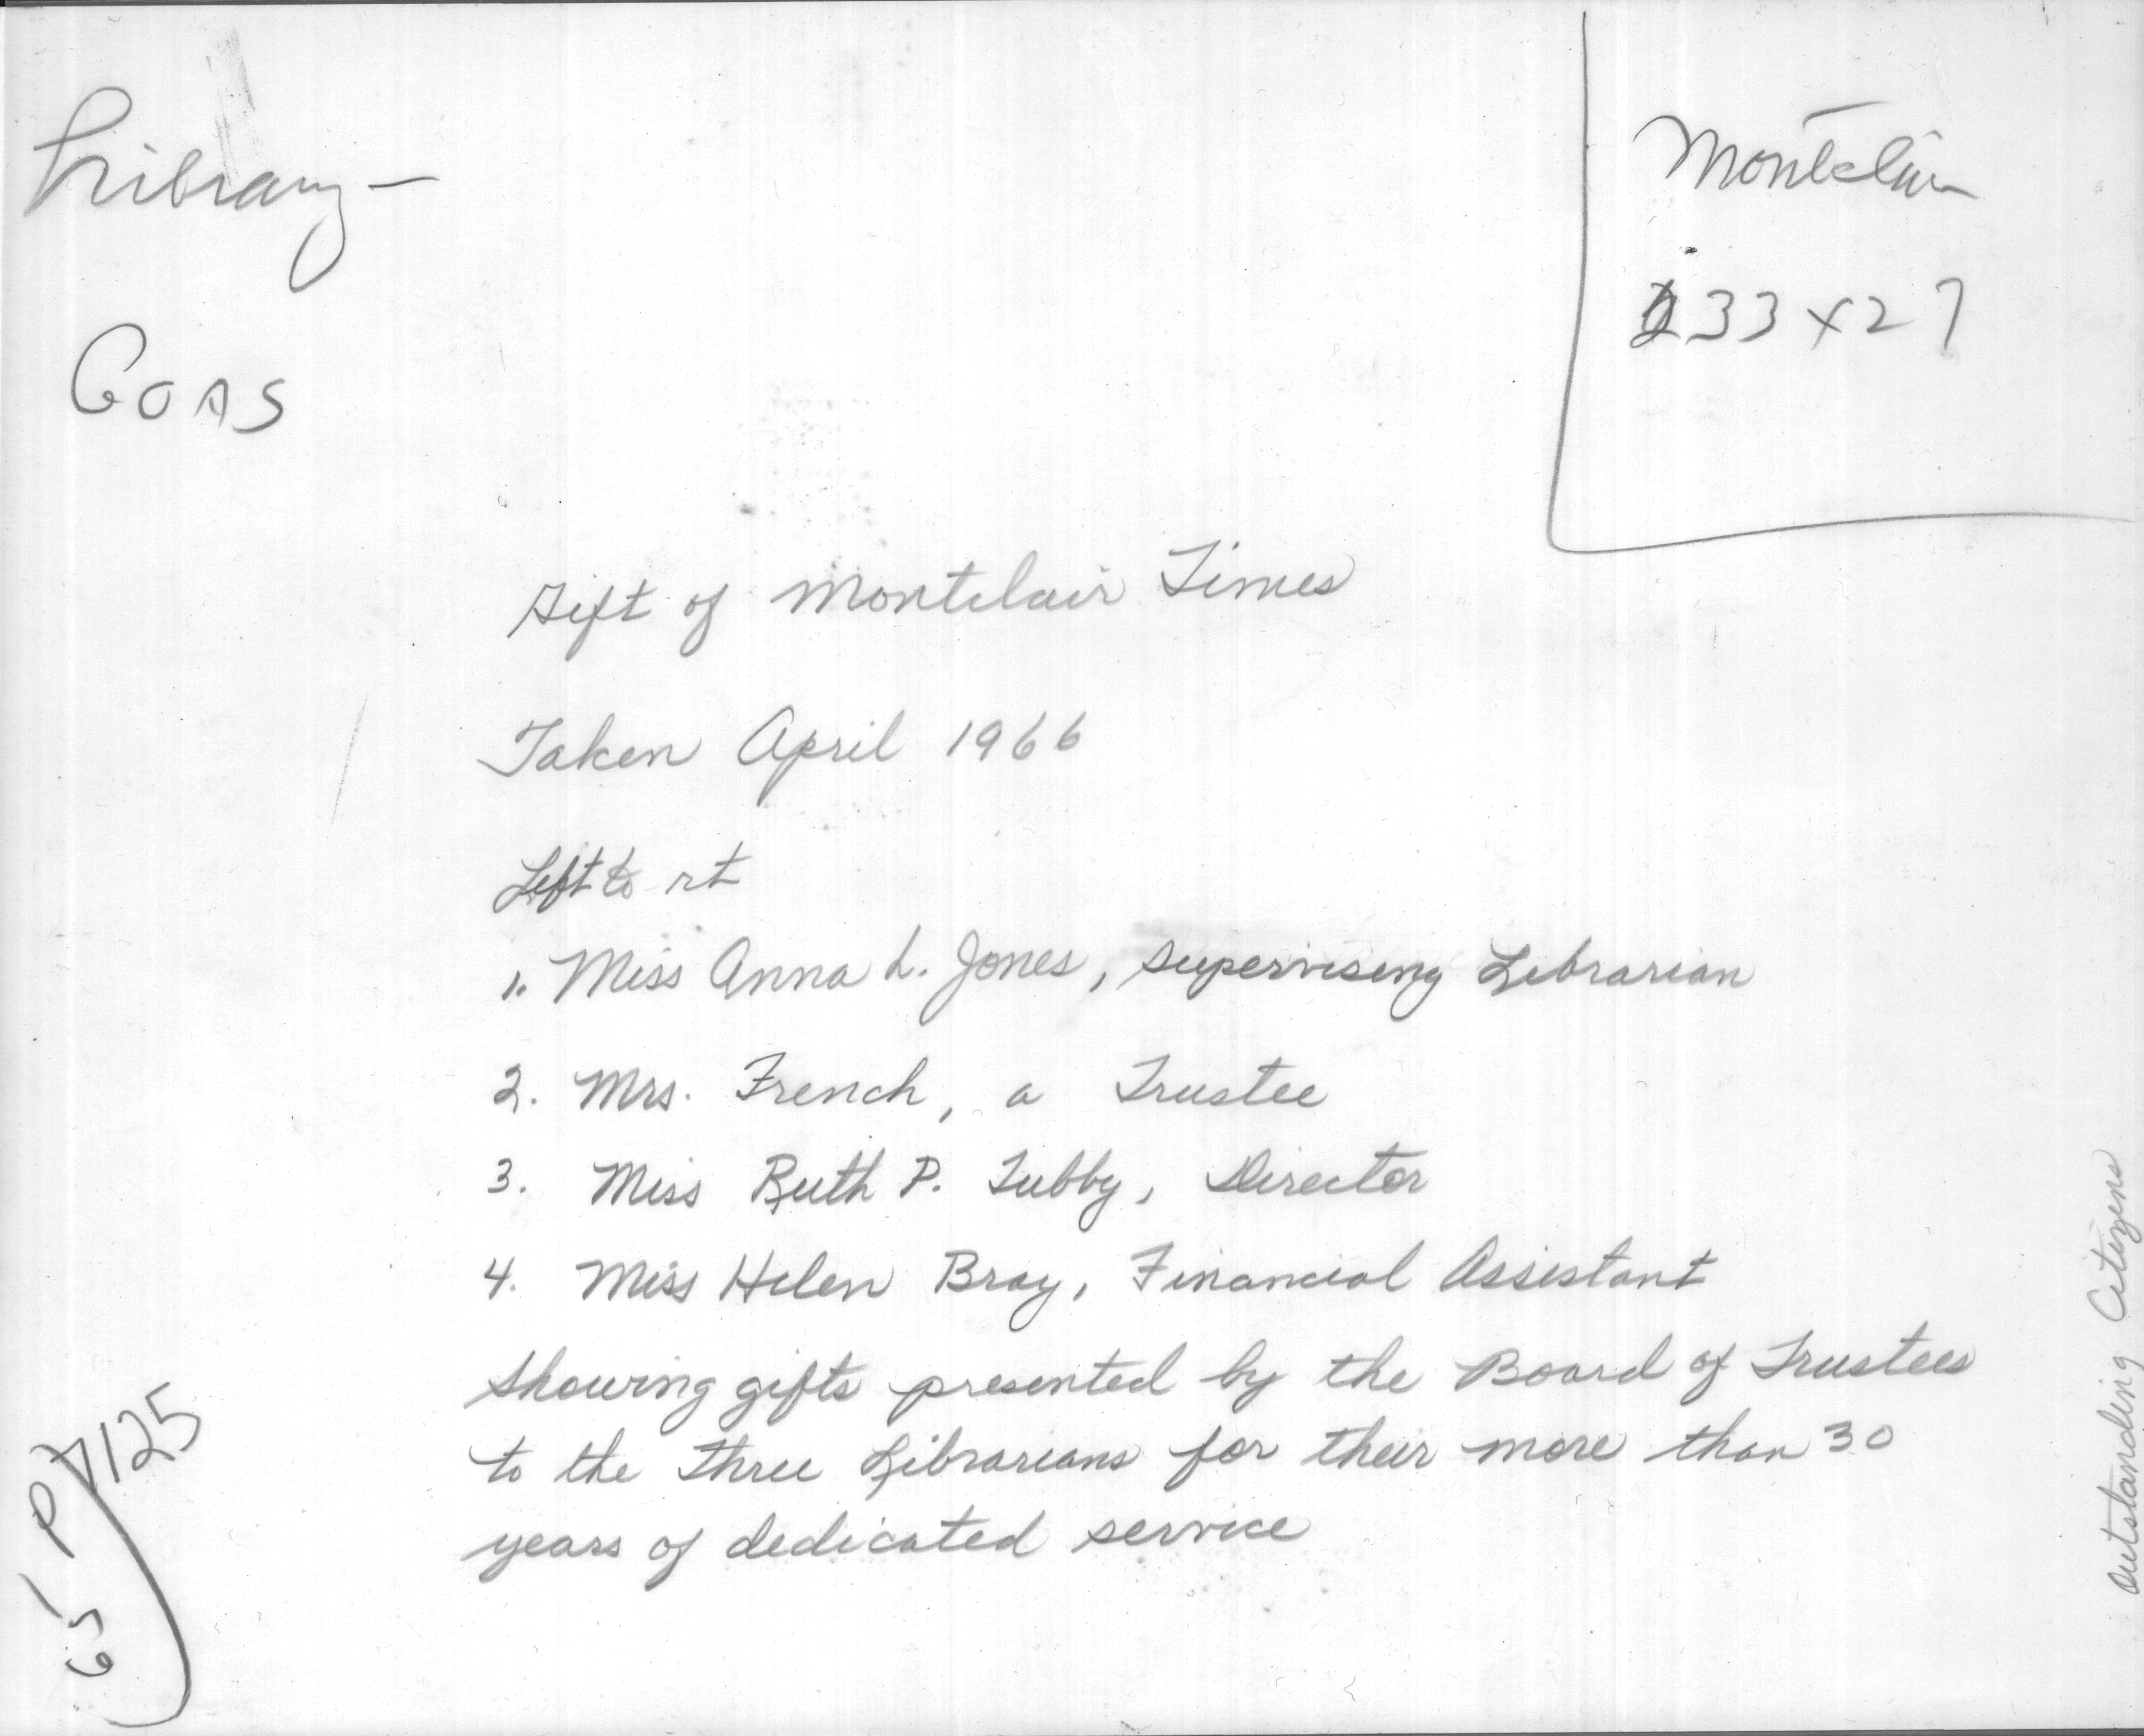 Library —
Montclair
33 x 27
Gift of Montclair Times
Taken April 1966
Left to rt
1. Miss Anna L. Jones, Supervising Librarian
2. Mrs. French, a Trustee
3. Miss Ruth P. Tubby, Director
4. Miss Helen Bray, Financial Assistant
Showing gifts presented by the Board of Trustees
to the three Librarians for their more than 30
years of dedicated service
Outstanding Citizens